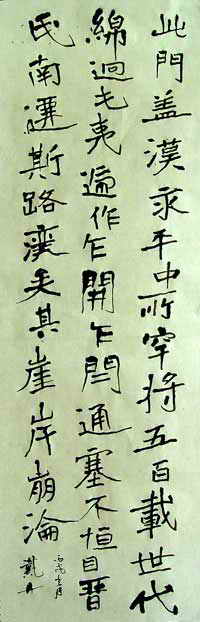 此門盖漢永平中所穿将五百載世代
綿迴屯夷遞作乍開乍閇通塞不恒自晉
氏南遷斯路廢矣其崖岸崩淪
丙戌 月
戴